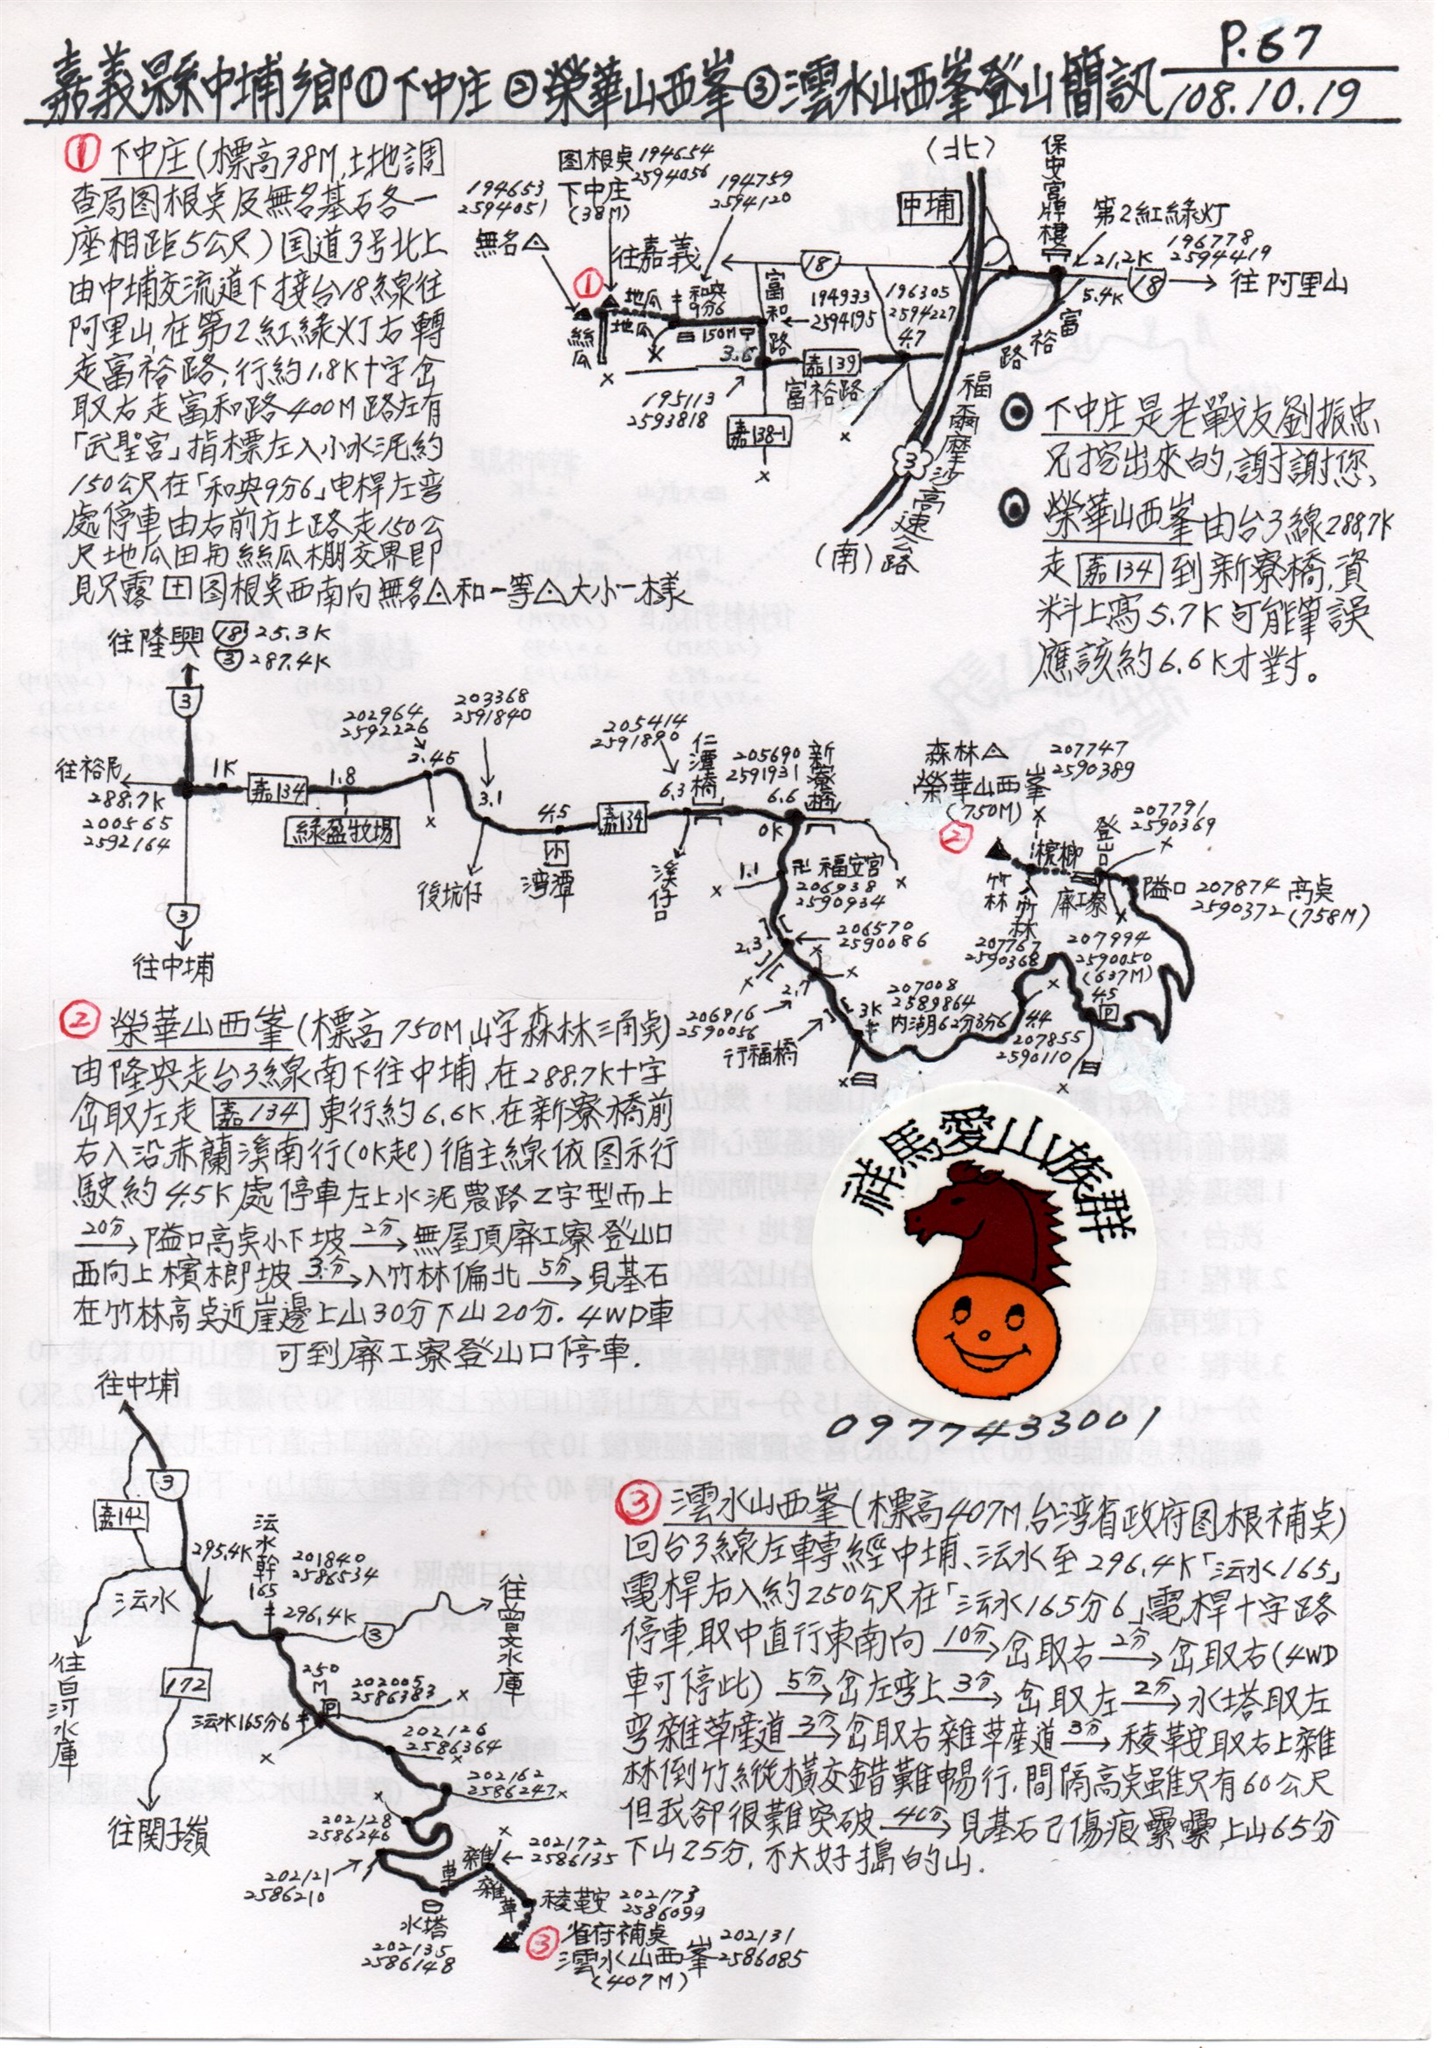 P.67
108.10.19
嘉義縣中埔鄉①下中庄②榮華山西峯③澐水山西峯登山簡訊
① 下中庄(標高38M,土地調
查局図根桌及無名基石各一
座相距5公尺)国道3号北上
由中埔交流道下接台18線往
阿里山,在第2紅綠灯右轉
走富裕路,行約1.8K十字岔
取右走富和路400M路左有
「武聖宮」指標左入小水泥約
150公尺在「和央9分6」电桿左弯
處停車由右前方土路走150公
尺地瓜田与絲瓜棚交界即
見只露田図根桌西南向無名△和一等△大小一樣
図根桌 194654
2594056
下中庄
(38M)
194653
2594051
無名△
194759
2594120
往嘉義
①
地瓜
地瓜
絲瓜
和央9分6
150M
3.6
富和路
18
194933
2594195
196305
2594227
4.7
嘉139
富裕路
195113
2593818
嘉138-1
(北)
中埔
保安宮牌樓
第2紅綠灯
21.2K
196778
2594419
18
往阿里山
5.4K
富裕路
福爾摩沙高速公路
3
(南)
◉ 下中庄是老戰友劉振忠
兄挖出來的,謝謝您、
◉ 榮華山西峯由台3線288.7K
走嘉134到新寮橋,資
料上寫5.7K可能筆誤
應該約6.6K才對。
往隆興 18 25.3K
3 287.4K
3
往裕民
288.7K
200565
2592164
3
往中埔
1K
嘉134
1.8
綠盈牧場
202964
2592226
2.45
203368
2591840
3.1
後坑仔
4.5
小
湾潭
嘉134
205414
2591890
6.3
仁潭橋
溪仔口
205690
2591931
6.6
0K
新寮橋
1.1
卍福安宮
206938
2590934
2.3
206570
2590086
2.7
206816
2590056
行福橋
3K
207008
2589864
内湖62分3分6
4.4
207855
2590110
207994
2590050
(637M)
4.5
回
森林△
榮華山西峯
(750M)
②
207747
2590389
竹林
竹林
檳榔
廢工寮
登山口
207791
2590369
207767
2590368
隘口 207874 高桌
2590372 (758M)
② 榮華山西峯(標高750M山字森林三角桌)
由隆央走台3線南下往中埔,在288.7K十字
岔取左走嘉134東行約6.6K,在新寮橋前
右入沿赤蘭溪南行(0K起)循主線依図示行
駛約4.5K處停車左上水泥農路Z字型而上
20分→隘口高桌小下坡2分→無屋頂廢工寮登山口
西向上檳榔坡3分→入竹林偏北5分→見基石
在竹林高桌近崖邊上山30分下山20分.4WD車
可到廢工寮登山口停車.
祥馬愛山族群
0977433001
往中埔
3
嘉142
295.4K
澐水
往白河水庫
172
往関子嶺
澐水幹165
201840
2586534
296.4K
3
往曾文水庫
250M
回
澐水165分6
202005
2586383
202126
2586364
202162
2586247
202128
2586246
202121
2586210
草
雜
雜草
202172
2586135
水塔
202135
2586148
稜鞍 202173
2586099
③ 省府補桌
澐水山西峯
(407M)
202131
2586085
③ 澐水山西峯(標高407M,台湾省政府図根補桌)
回台3線左轉經中埔、澐水至296.4K「澐水165」
電桿右入約250公尺在「澐水165分6」電桿十字路
停車,取中直行東南向10分→岔取右2分→岔取右(4WD
車可停此)5分→岔左弯上3分→岔取左2分→水塔取左
弯雜草產道3分→岔取右雜草產道3分→稜鞍取右上雜
林倒竹縱橫交錯難暢行,間隔高桌雖只有60公尺
但我卻很難突破40分→見基石已傷痕纍纍,上山65分
下山25分,不大好搗的山.